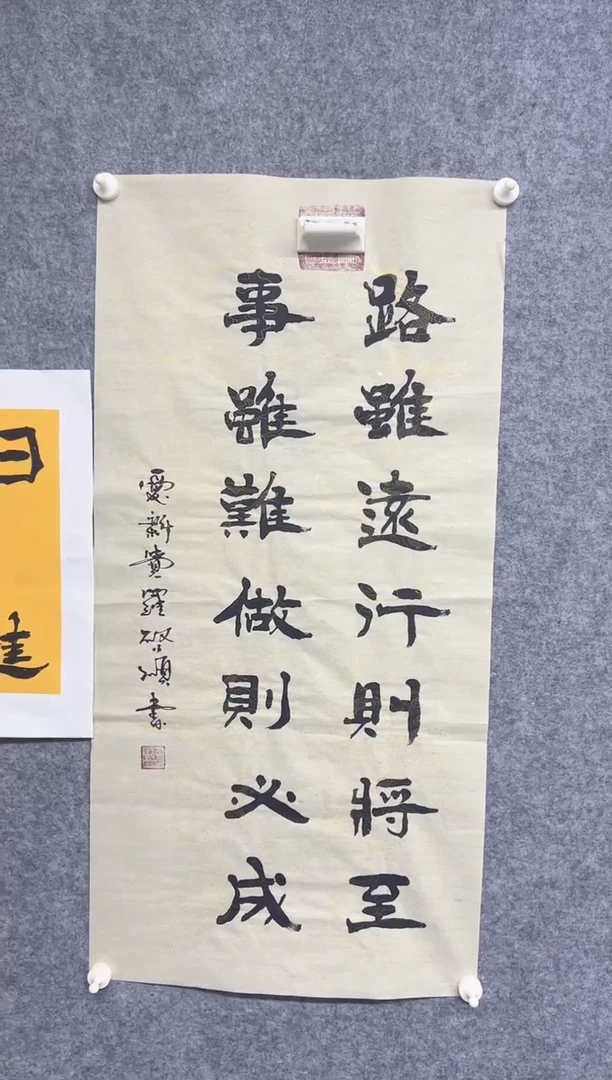 路雖遠行則將至
事雖難做則必成
愛新覺羅啓碩書
日
進